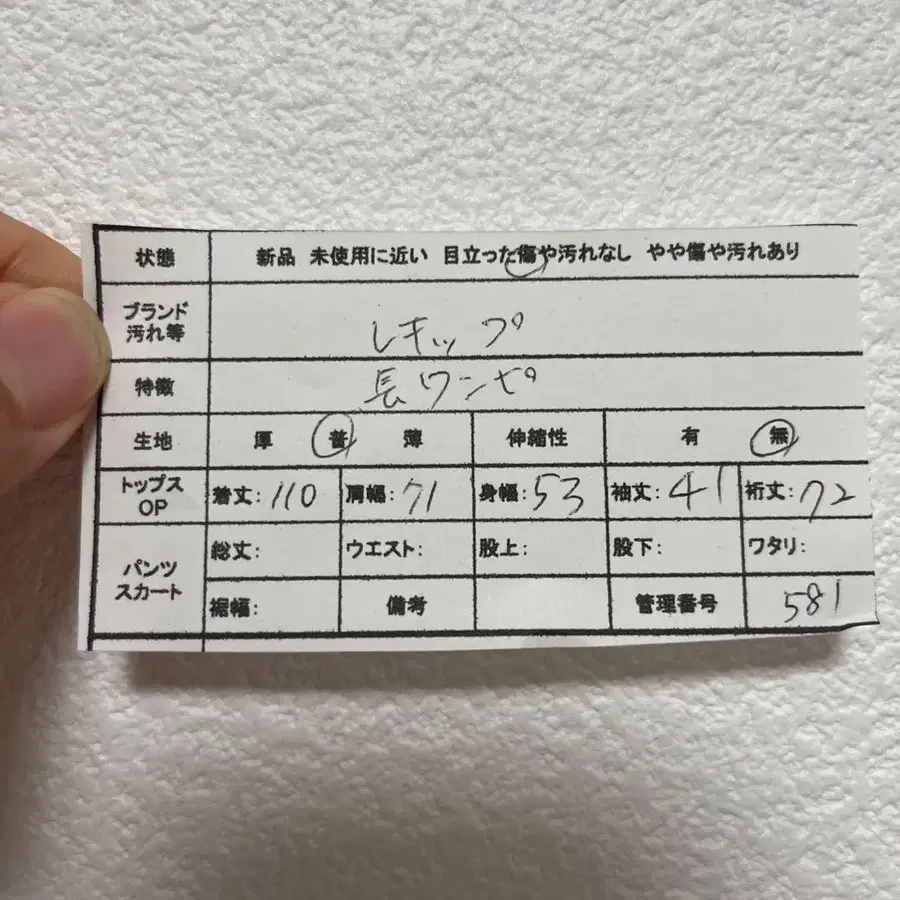 状態 新品 未使用に近い 目立った傷や汚れなし やや傷や汚れあり
ブランド
汚れ等 レキップ
特徴 長ワンピ
生地 厚 普 薄 伸縮性 有 無
トップス
OP 着丈:110 肩幅:71 身幅:53 袖丈:41 裄丈:72
パンツ
スカート 総丈: ウエスト: 股上: 股下: ワタリ:
裾幅: 備考 管理番号 581